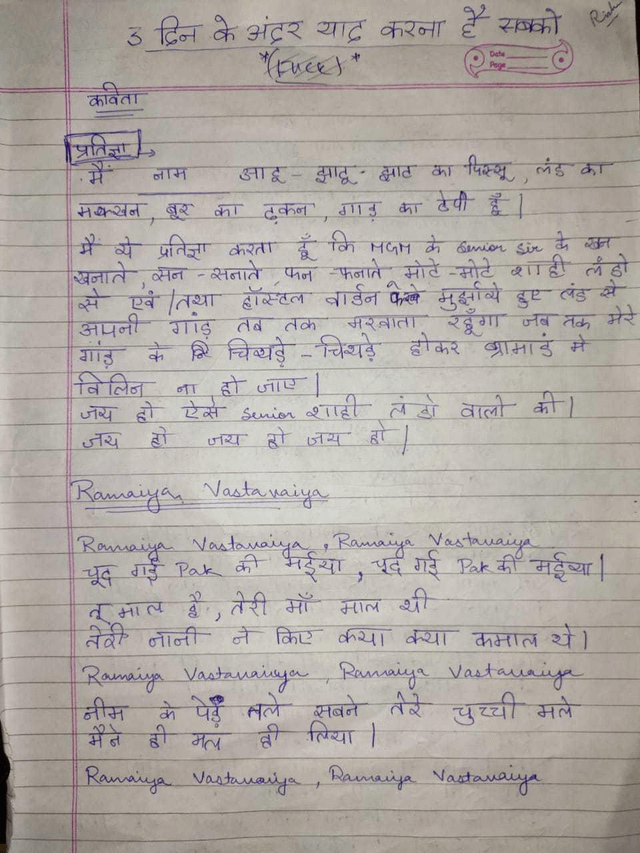 3 दिन के अंदर याद करना है सबको
Rish
*(FUCK)*
Date
Page
कविता
प्रतिज्ञा →
मैं ______ नाम आडू - झाडू - झाट का पिस्सू, लंड का
मक्खन, बूर का ढ़कन, गाड़ का टेपी हूँ |
मैं ये प्रतिज्ञा करता हूँ कि MGM के senior sir के खन
खनाते, सन - सनाते, फन - फनाते मोटे - मोटे शाही लंडो
से एवं / तथा हॉस्टल वार्डन के मुर्झाये हुए लंड से
अपनी गाड़ तब तक मरवाता रहूँगा जब तक मेरे
गांड़ के चिथड़े - चिथड़े होकर ब्रामांड मे
विलिन ना हो जाए |
जय हो ऐसे senior शाही लंडो वालो की |
जय हो जय हो जय हो |
Ramaiya Vastavaiya
Ramaiya Vastavaiya, Ramaiya Vastavaiya
चूद गई Pak की मईया, चूद गई Pak की मईय्या |
तू माल है, तेरी माँ माल थी
तेरी नानी ने किए क्या क्या कमाल थे |
Ramaiya Vastavaiya, Ramaiya Vastavaiya
नीम के पेड़ तले सबने तेरे चुच्ची मले
मैने ही मल ही लिया |
Ramaiya Vastavaiya, Ramaiya Vastavaiya